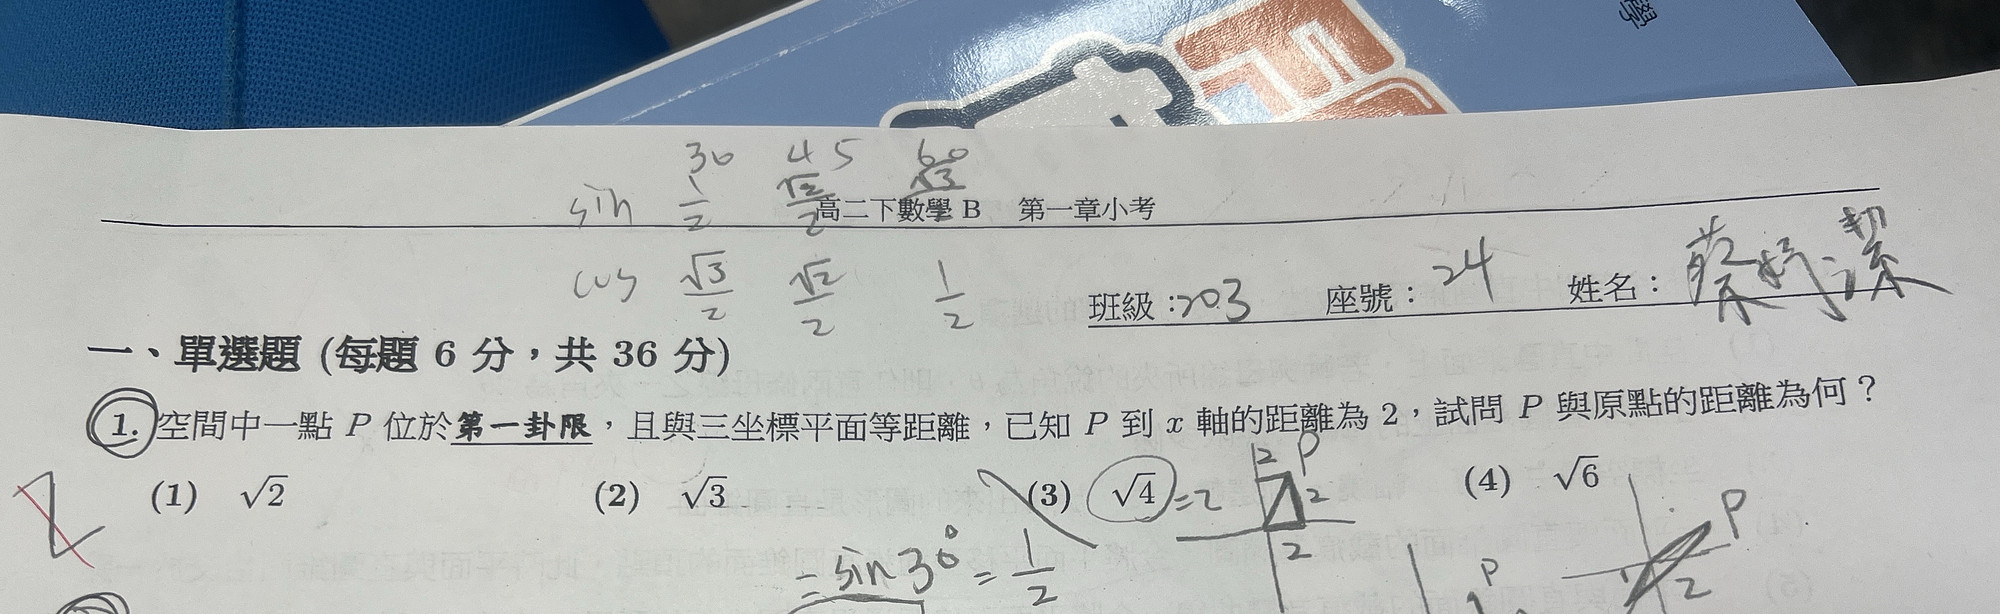 學
30 45 60
sin 1/2 √2/2 √3/2
高二下數學 B 第一章小考
cos √3/2 √2/2 1/2
班級：203 座號：24 姓名：蔡
一、單選題 (每題 6 分，共 36 分)
1. 空間中一點 P 位於第一卦限，且與三坐標平面等距離，已知 P 到 x 軸的距離為 2，試問 P 與原點的距離為何？
(1) √2 (2) √3 (3) √4 = 2 (4) √6
2 P 2 2
P 2
= sin 30° = 1/2
P